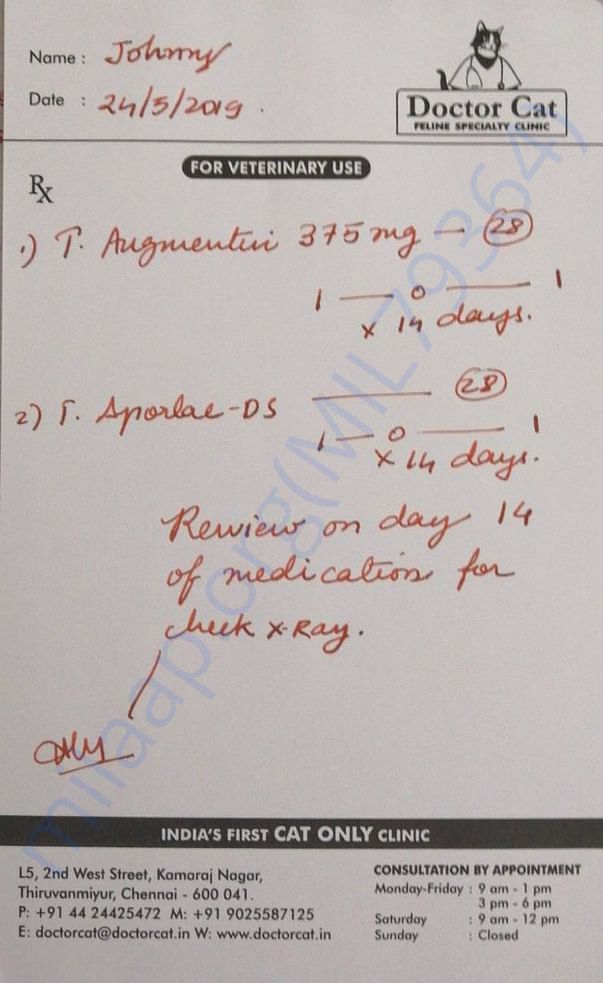 Name : Johnny
Date : 24/5/2019.
Doctor Cat
FELINE SPECIALTY CLINIC
FOR VETERINARY USE
Rx
1) T. Augmentin 375 mg — 28
1 — 0 — 1
x 14 days.
2) T. Aporlac-DS — 28
1 — 0 — 1
x 14 days.
Review on day 14
of medication for
check X-Ray.
milaap.org(MIL79364)
INDIA'S FIRST CAT ONLY CLINIC
L5, 2nd West Street, Kamaraj Nagar,
Thiruvanmiyur, Chennai - 600 041.
P: +91 44 24425472 M: +91 9025587125
E: doctorcat@doctorcat.in W: www.doctorcat.in
CONSULTATION BY APPOINTMENT
Monday-Friday : 9 am - 1 pm
3 pm - 6 pm
Saturday : 9 am - 12 pm
Sunday : Closed